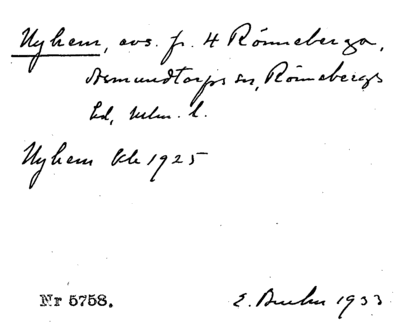 Nyhem, avs. fr. 4 Rönneberga,
Asmundtorps sn, Rönnebergs
hd, Mlm. l.
Nyhem Kk 1925
Nr 5758. E. 1933